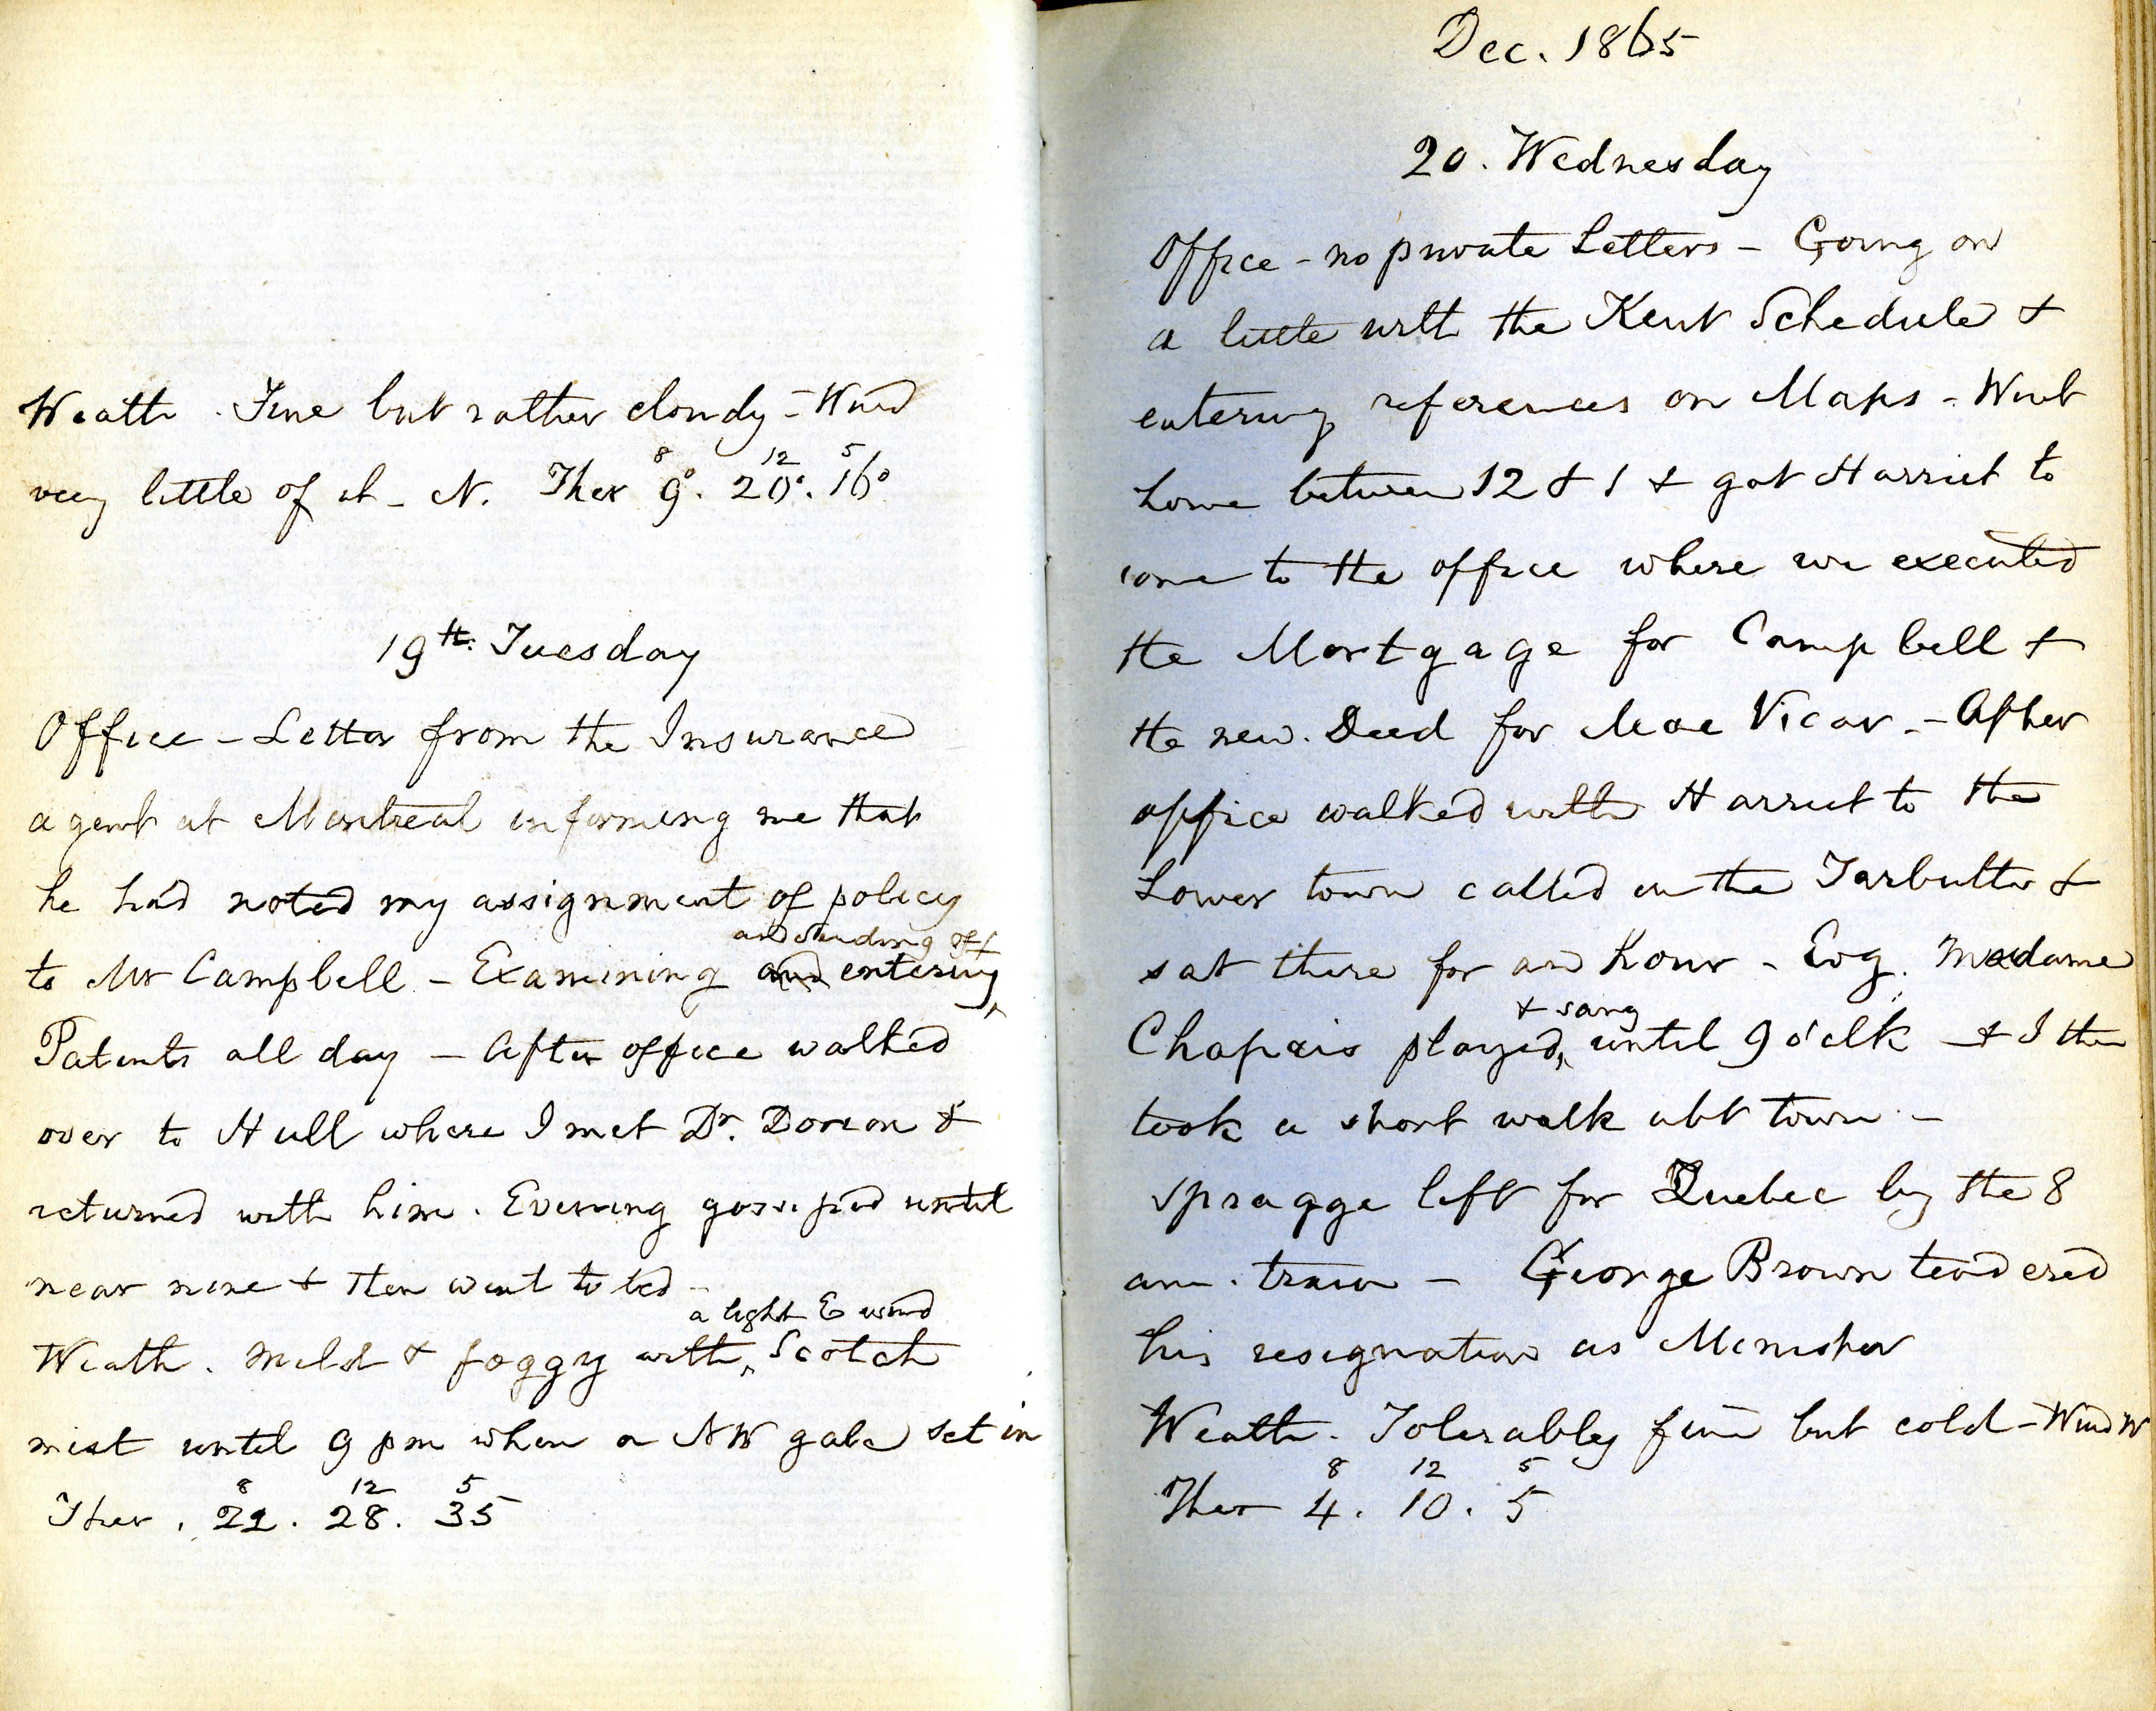 Weath. Fine but rather cloudy - Wind
very little of it - N. Ther 8 9°. 12 20°. 5 16°
19th. Tuesday
Office - Letter from the Insurance
agent at Montreal informing me that
he had noted my assignment of policy
to Mr Campbell - Examining and entering and sending off
Patents all day - After office walked
over to Hull where I met Dr. Dorion &
returned with him. Evening gossiped until
near nine & then went to bed -
Weath. Mild & foggy with a light E wind Scotch
mist until 9 pm when a NW gale set in
Ther. 8 22. 12 28. 5 35
Dec. 1865
20. Wednesday
Office - no private Letters - Going on
a little with the Kent Schedule &
entering references on Maps - Went
home between 12 & 1 & got Harriet to
come to the office where we executed
the Mortgage for Campbell &
the new Deed for Mac Vicar - After
office walked with Harriet to the
Lower town called on the Tarbutts &
sat there for an hour - Evg. Madame
Chapais played & sang until 9 o'clk & I then
took a short walk abt town -
Spragge left for Quebec by the 8
am. train - George Brown tendered
his resignation as Minister
Weath. Tolerably fine but cold - Wind W
Ther 8 4. 12 10. 5 5